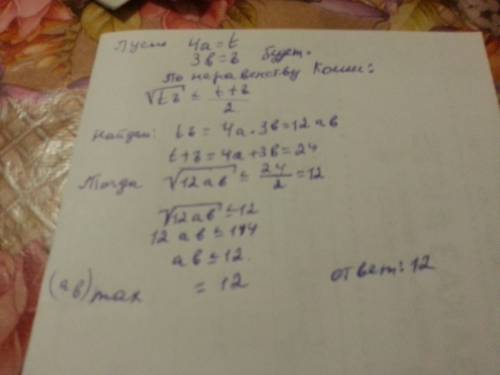 Пусть 4a = t
3b = z будет.
По неравенству Коши:
√tz ≤ t+z/2
Найдем: tz = 4a·3b = 12ab
t+z = 4a+3b = 24
Тогда √12ab ≤ 24/2 = 12
√12ab ≤ 12
12 ab ≤ 144
ab ≤ 12.
(ab)max = 12 ответ: 12